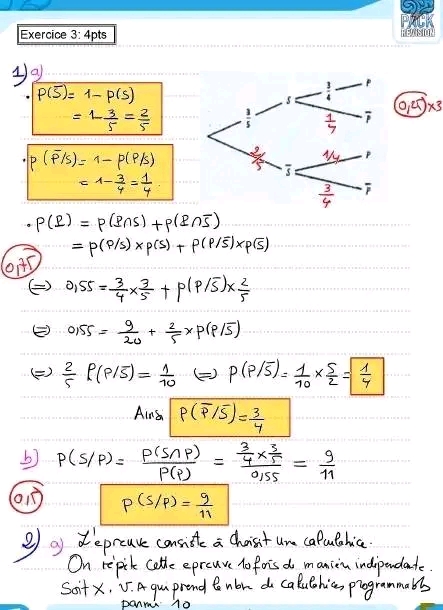 PACK
REVISION
Exercice 3: 4pts
1) a)
• P(S̅) = 1 - P(S)
= 1 - 3/5 = 2/5
• P(P̅/S) = 1 - P(P/S)
= 1 - 3/4 = 1/4
3/5 S 3/4 P
1/4 P̅
2/5 S̅ 1/4 P
3/4 P̅
0,25 x 3
• P(P) = P(P∩S) + P(P∩S̅)
= P(P/S) x P(S) + P(P/S̅) x P(S̅)
0,75
⇔ 0,55 = 3/4 x 3/5 + P(P/S̅) x 2/5
⇔ 0,55 = 9/20 + 2/5 x P(P/S̅)
⇔ 2/5 P(P/S̅) = 1/10 ⇔ P(P/S̅) = 1/10 x 5/2 = 1/4
Ainsi P(P̅/S̅) = 3/4
b) P(S/P) = P(S∩P)/P(P) = (3/4 x 3/5)/0,55 = 9/11
0,5
P(S/P) = 9/11
2) a) L'epreuve consiste à choisit une calculatrice.
On répète cette epreuve 10 fois de manière independante.
Soit X, V.A qui prend le nbre de calculatrices programmables
parmi 10